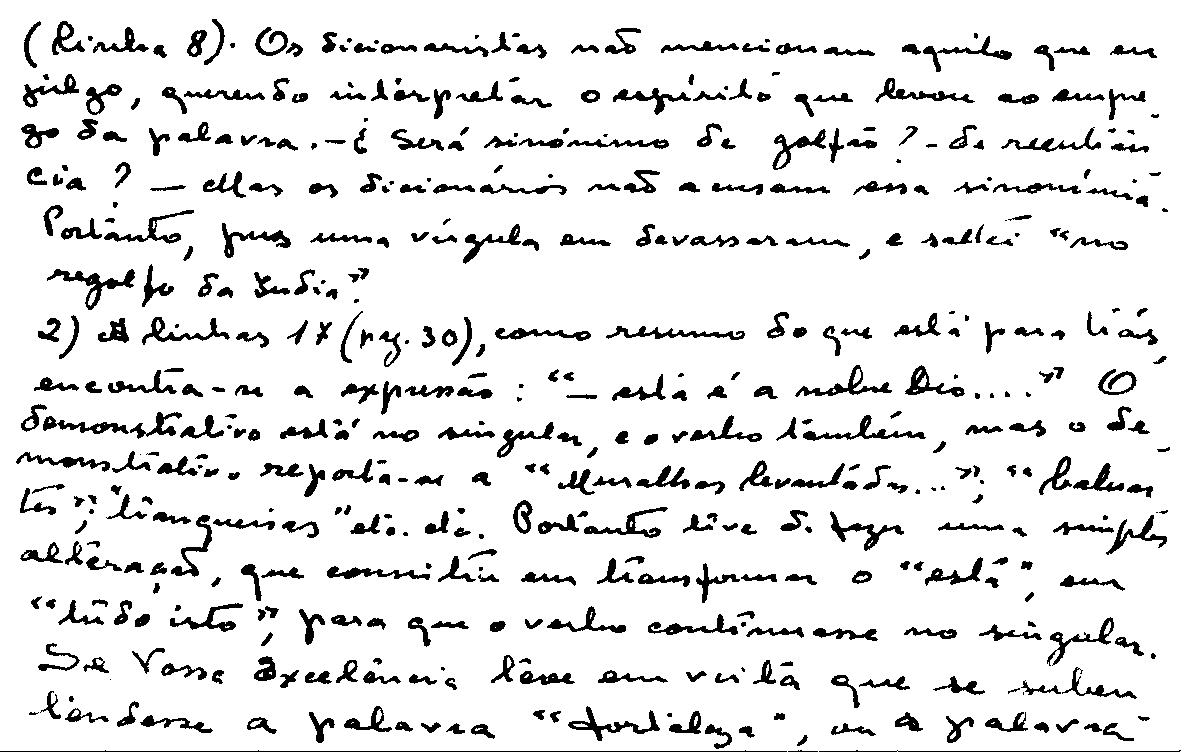 (Linha 8). Os dicionaristas não mencionam aquilo que eu
julgo, querendo interpretar o espírito que levou ao empre-
go da palavra. - ¿ Será sinónimo de golfão? - de reentrân
cia? - Mas os dicionários não acusam essa sinonímia.
Portanto, pus uma vírgula em devassaram, e saltei "no
regolfo da Índia".
2) A linhas 17 (pag. 30), como resumo do que está para trás,
encontra-se a expressão: "- está é a nobre Dio...." O
demonstrativo está no singular, e o verbo também, mas o de-
monstrativo reporta-se a "Muralhas levantadas..."; "baluar
tes"; "tranqueiras" etc. etc. Portanto tive de fazer uma simples
alteração, que consistiu em transformar o "está", em
"tudo isto", para que o verbo continuasse no singular.
Se Vossa Excelência teve em vista que se suben
tendesse a palavra "fortaleza", ou a palavra